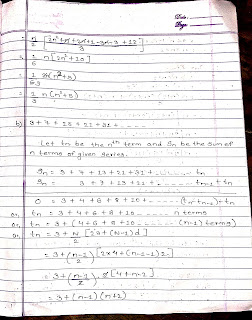 Date :
Page :
= n/2 [ 2n²+ +2n+1-3n-3+12 / 3 ]
= 1/6 n [2n²+10]
= 1/63 n (n²+5)
= 1/3 n (n²+5)
b) 3+7+13+21+31+........
Let tn be the nth term and Sn be the sum of
n terms of given series.
Sn = 3+7+13+21+31+ ...... tn
Sn = 3+7+13+21+ ...... tn-1 + tn
0 = 3+4+6+8+10...... (tn-tn-1) - tn
or, tn = 3+4+6+8+10 ........ n terms
or, tn = 3+(4+6+8+10 ........ (n-1) terms)
or, tn = 3+ N/2 [2a+(N-1)d]
= 3+(n-1/2) [2x4+(n-1-1)2]
= 3+(n-1/2) 2[4+n-2]
= 3+(n-1)(n+2)